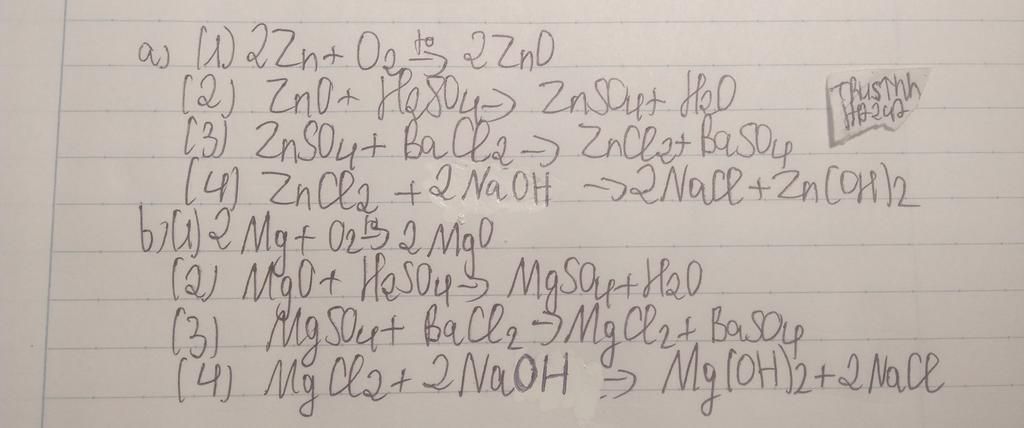 a) (1) 2Zn + O2 t° → 2ZnO
(2) ZnO + H2SO4 → ZnSO4 + H2O
(3) ZnSO4 + BaCl2 → ZnCl2 + BaSO4
(4) ZnCl2 + 2NaOH → 2NaCl + Zn(OH)2
b) (1) 2Mg + O2 t° → 2MgO
(2) MgO + H2SO4 → MgSO4 + H2O
(3) MgSO4 + BaCl2 → MgCl2 + BaSO4
(4) MgCl2 + 2NaOH → Mg(OH)2 + 2NaCl